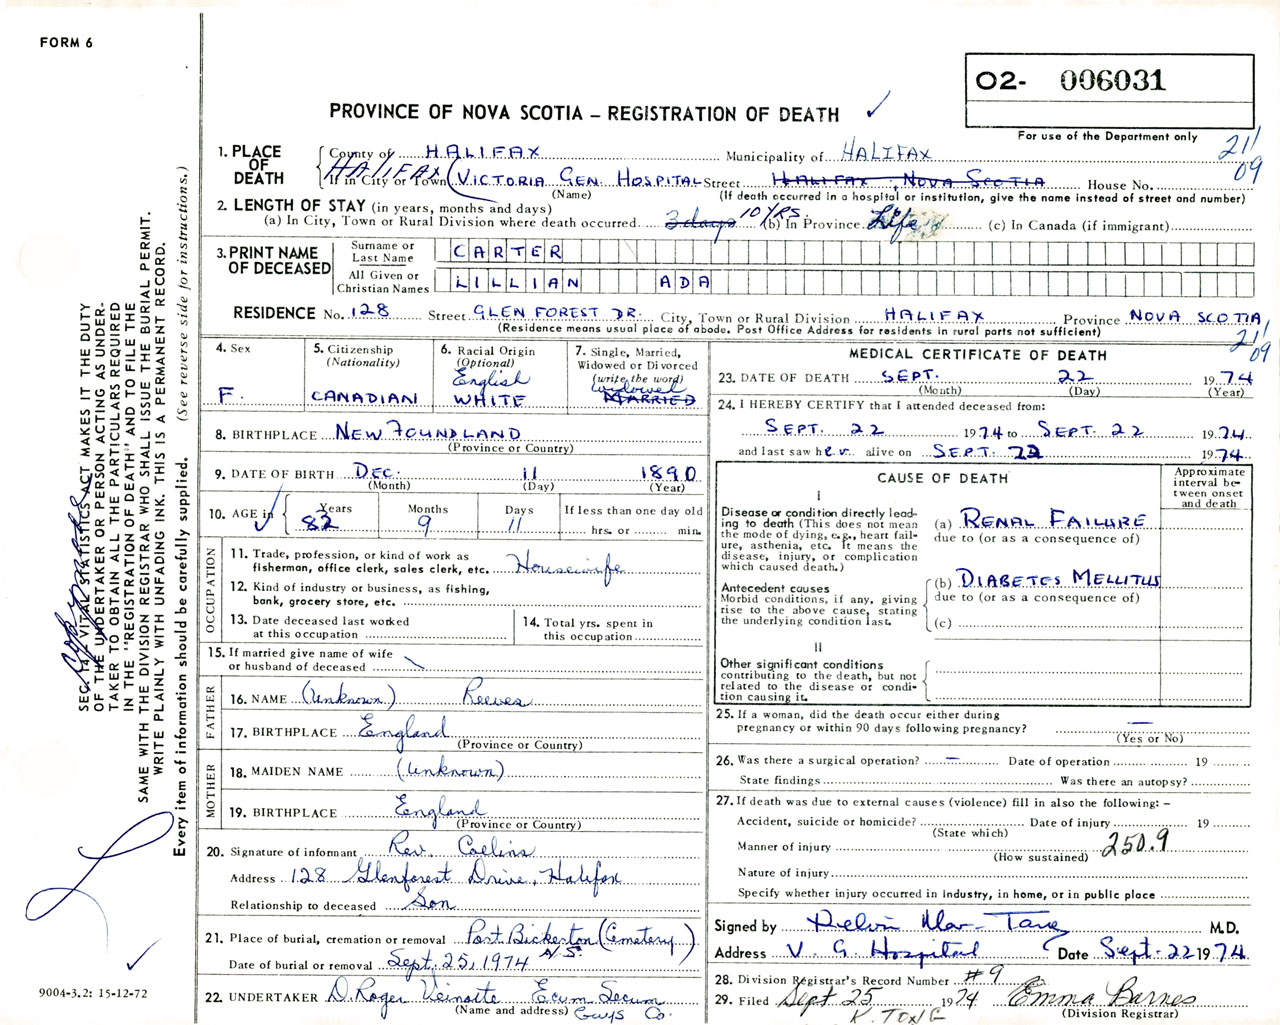 FORM 6
O2- 006031
For use of the Department only
PROVINCE OF NOVA SCOTIA – REGISTRATION OF DEATH
21/09
1. PLACE OF DEATH
County of HALIFAX Municipality of HALIFAX
HALIFAX
If in City or Town (VICTORIA GEN. HOSPITAL Street HALIFAX, NOVA SCOTIA House No.
(Name) (If death occurred in a hospital or institution, give the name instead of street and number)
2. LENGTH OF STAY (in years, months and days)
(a) In City, Town or Rural Division where death occurred 3 days 10 YRS. (b) In Province Life (c) In Canada (if immigrant)
3. PRINT NAME OF DECEASED
Surname or Last Name CARTER
All Given or Christian Names LILLIAN ADA
RESIDENCE No. 128 Street GLEN FOREST DR. City, Town or Rural Division HALIFAX Province NOVA SCOTIA
(Residence means usual place of abode. Post Office Address for residents in rural parts not sufficient)
21/09
4. Sex
F.
5. Citizenship
(Nationality)
CANADIAN
6. Racial Origin
(Optional)
English
WHITE
7. Single, Married,
Widowed or Divorced
(write the word)
widowed
MARRIED
8. BIRTHPLACE NEWFOUNDLAND
(Province or Country)
9. DATE OF BIRTH DEC. 11 1890
(Month) (Day) (Year)
10. AGE in Years Months Days If less than one day old
82 9 11 hrs. or min.
OCCUPATION
11. Trade, profession, or kind of work as
fisherman, office clerk, sales clerk, etc. Housewife
12. Kind of industry or business, as fishing,
bank, grocery store, etc.
13. Date deceased last worked
at this occupation
14. Total yrs. spent in
this occupation
15. If married give name of wife
or husband of deceased
FATHER
16. NAME (Unknown) Reeves
17. BIRTHPLACE England
(Province or Country)
MOTHER
18. MAIDEN NAME (Unknown)
19. BIRTHPLACE England
(Province or Country)
20. Signature of informant Rev. Collins
Address 128 Glenforest Drive, Halifax
Relationship to deceased Son
21. Place of burial, cremation or removal Port Bickerton (Cemetery)
N/S.
Date of burial or removal Sept. 25, 1974
22. UNDERTAKER D. Roger Veinotte Ecum Secum
(Name and address) Guys Co.
MEDICAL CERTIFICATE OF DEATH
23. DATE OF DEATH SEPT. 22 1974
(Month) (Day) (Year)
24. I HEREBY CERTIFY that I attended deceased from:
SEPT. 22 1974 to SEPT. 22 1974
and last saw her alive on SEPT. 22 1974
CAUSE OF DEATH
Approximate
interval be-
tween onset
and death
I
Disease or condition directly lead-
ing to death (This does not mean
the mode of dying, e.g., heart fail-
ure, asthenia, etc. It means the
disease, injury, or complication
which caused death.)
(a) RENAL FAILURE
due to (or as a consequence of)
Antecedent causes
Morbid conditions, if any, giving
rise to the above cause, stating
the underlying condition last.
(b) DIABETES MELLITUS
due to (or as a consequence of)
(c)
II
Other significant conditions
contributing to the death, but not
related to the disease or condi-
tion causing it.
25. If a woman, did the death occur either during
pregnancy or within 90 days following pregnancy? —
(Yes or No)
26. Was there a surgical operation? — Date of operation 19
State findings Was there an autopsy?
27. If death was due to external causes (violence) fill in also the following: –
Accident, suicide or homicide? Date of injury 19
(State which)
Manner of injury 250.9
(How sustained)
Nature of injury
Specify whether injury occurred in industry, in home, or in public place
Signed by M.D.
Address V. G. Hospital Date Sept. 22 1974
28. Division Registrar's Record Number #9
29. Filed Sept 25 1974 Emma Barnes
(Division Registrar)
K. TONG
SEC. 14 - VITAL STATISTICS ACT MAKES IT THE DUTY
OF THE UNDERTAKER OR PERSON ACTING AS UNDER-
TAKER TO OBTAIN ALL THE PARTICULARS REQUIRED
IN THE "REGISTRATION OF DEATH" AND TO FILE THE
SAME WITH THE DIVISION REGISTRAR WHO SHALL ISSUE THE BURIAL PERMIT.
WRITE PLAINLY WITH UNFADING INK. THIS IS A PERMANENT RECORD.
Every item of information should be carefully supplied. (See reverse side for instructions.)
9004-3.2: 15-12-72